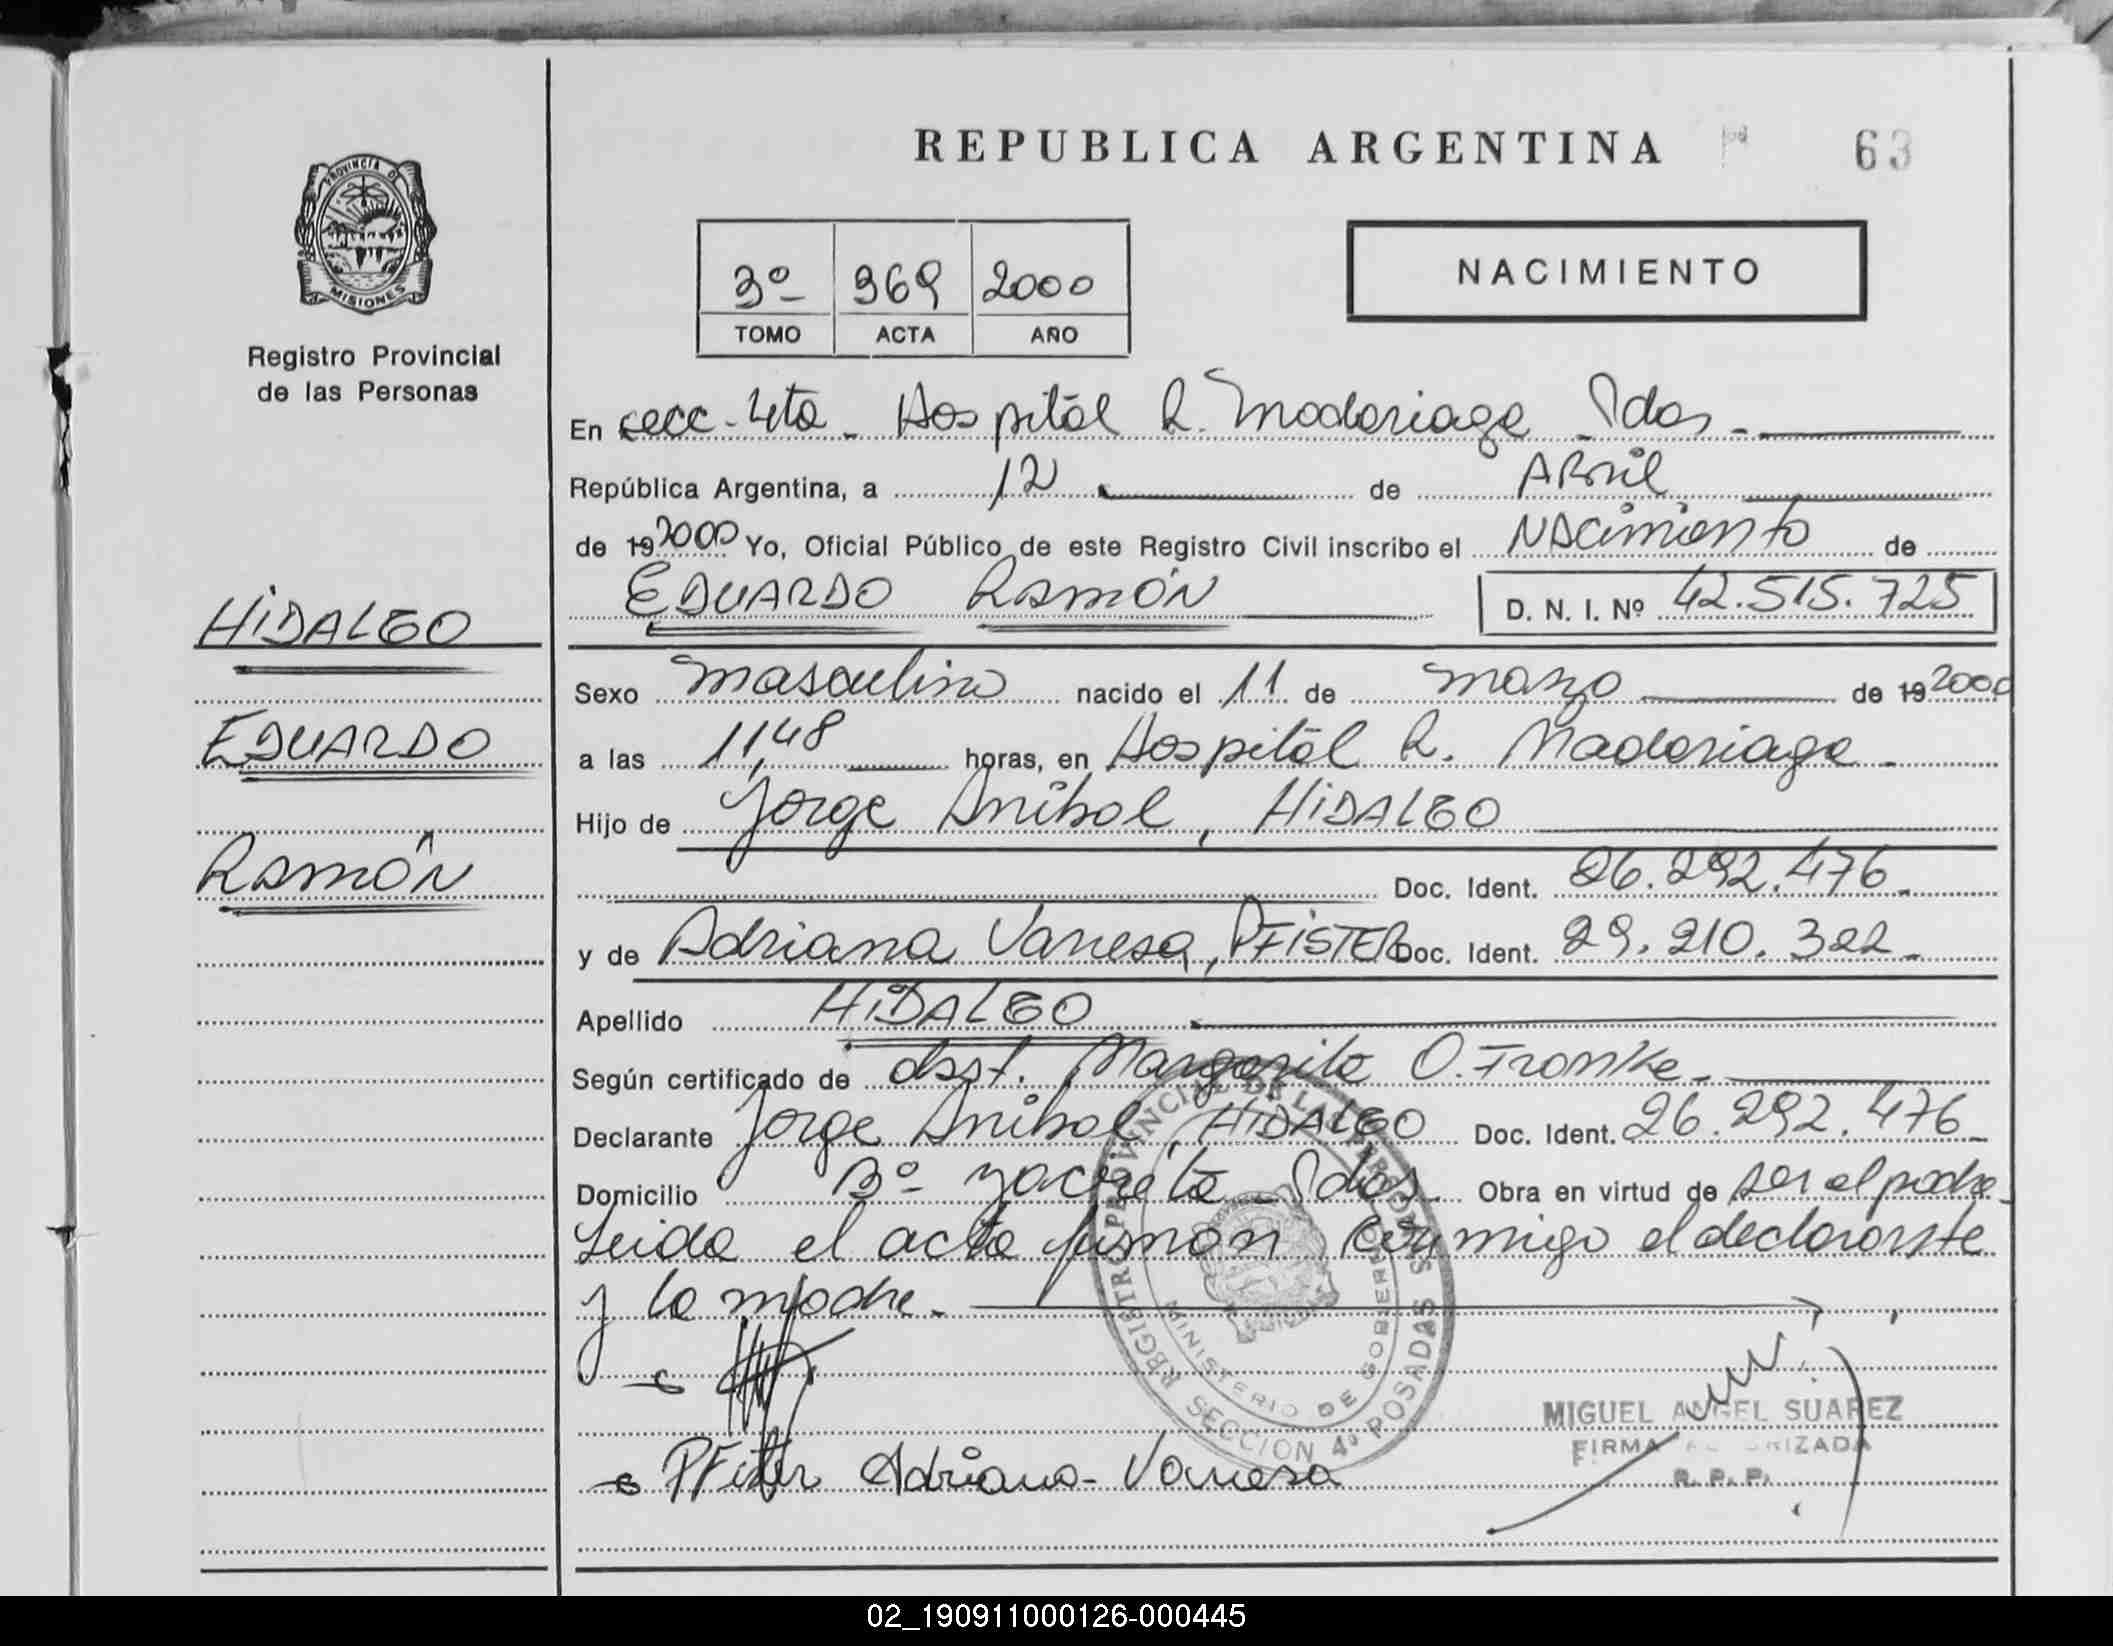 REPUBLICA ARGENTINA
63
PROVINCIA DE
MISIONES
Registro Provincial
de las Personas
3º 369 2000
TOMO ACTA AÑO
NACIMIENTO
En secc. 4ta - Hospital R. Madariaga - Pdas -
República Argentina, a 12 de Abril
de 19 2000 Yo, Oficial Público de este Registro Civil inscribo el Nacimiento de
EDUARDO RAMÓN D. N. I. Nº 42.515.725
HIDALGO
EDUARDO
RAMÓN
Sexo masculino nacido el 11 de marzo de 19 2000
a las 11,48 horas, en Hospital R. Madariaga -
Hijo de Jorge Anibal, HIDALGO
Doc. Ident. 26.292.476 -
y de Adriana Vanesa, PFISTER Doc. Ident. 29.210.322 -
Apellido HIDALGO
Según certificado de obst. Margarita O.
Declarante Jorge Anibal, HIDALGO Doc. Ident. 26.292.476 -
Domicilio Bº Yacyreta - Pdas. Obra en virtud de ser el padre -
Leida el acta firman conmigo el declarante
y la madre. -
REGISTRO PROVINCIAL DE LAS PERSONAS
MINISTERIO DE GOBIERNO
SECCION 4ª POSADAS
MIGUEL ANGEL SUAREZ
FIRMA AUTORIZADA
R. P. P.
Pfister Adriana - Vanesa
02_190911000126-000445